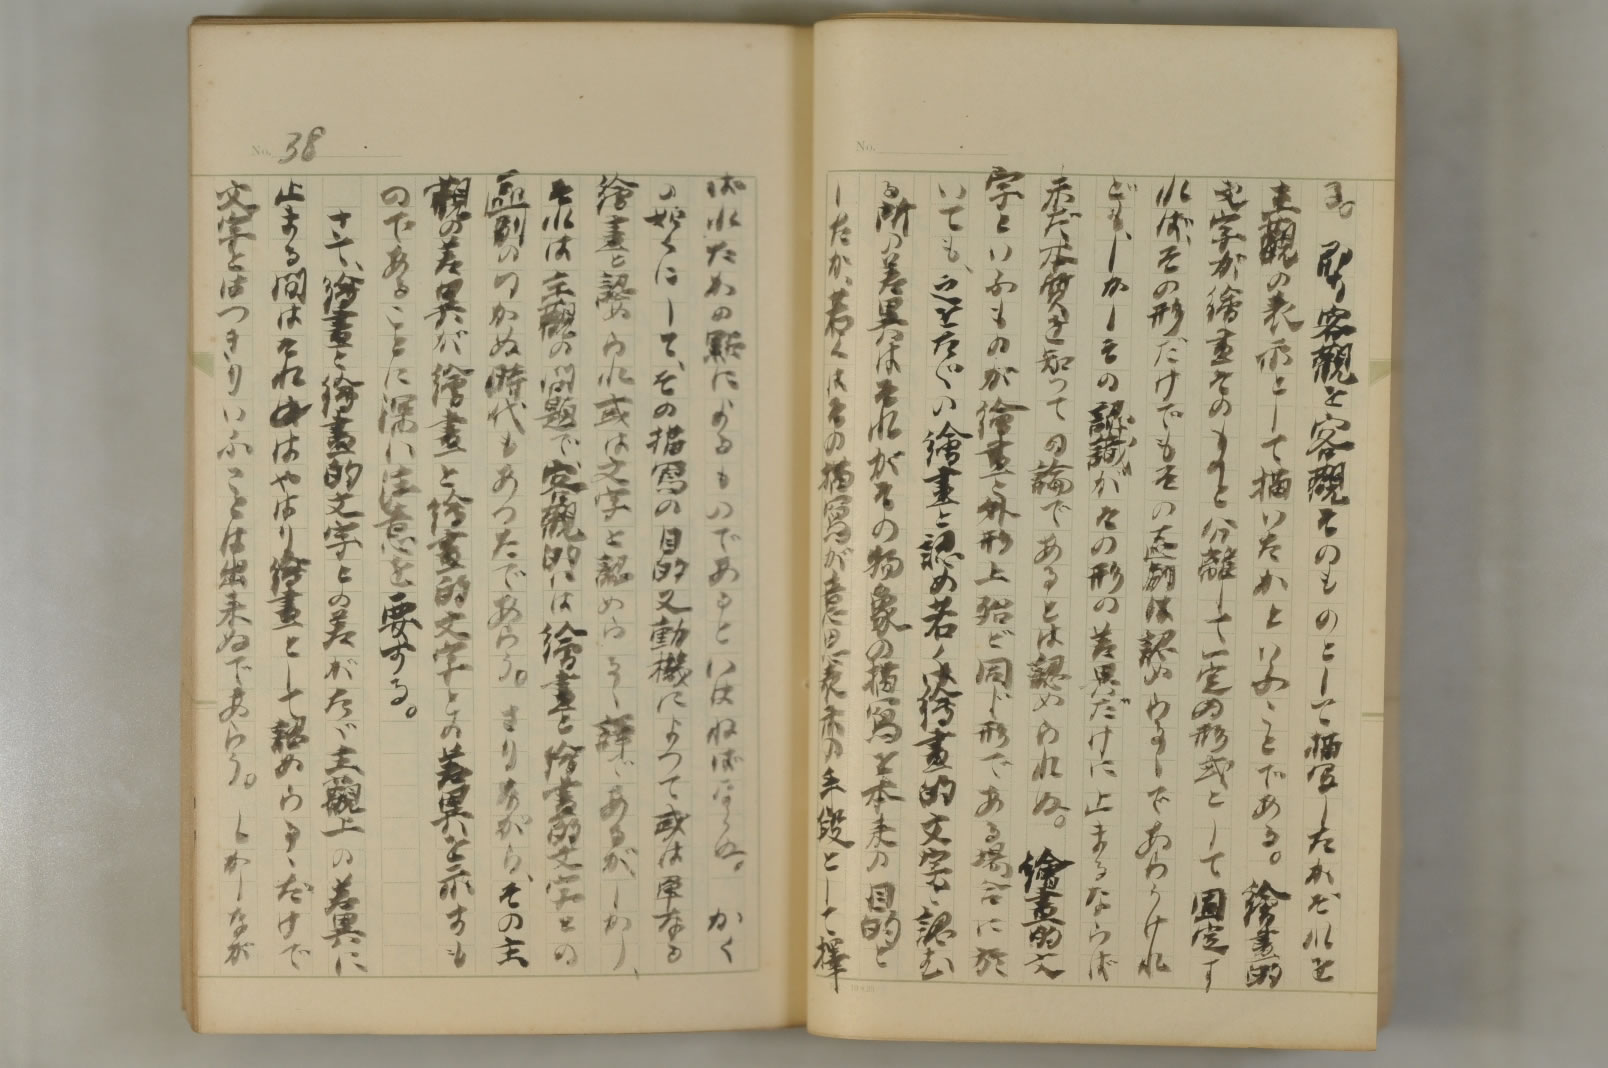 る。即ち客觀を客觀そのものとして描寫したかそれを
主觀の表示として描いたかといふことである。繪畫的
文字が繪畫そのものと分離して一定の形式として固定す
れば、その形だけでもその區別は認めらるゝであらうけれ
ども、しかしその認識がその形の差異だけに止まるならば
未だ本質を知つての論であるとは認められぬ。繪畫的文
字といふものが繪畫と外形上殆ど同じ形である場合に於
いても、之をたゞの繪畫と認め若くは繪畫的文字と認む
る所の差異はそれがその物象の描寫を本来の目的と
したか、若くはその描寫が意思表示の手段として擇
No. 38
ばれたかの點によるものであるといはねばならぬ。かく
の如くにして、その描寫の目的又動機によつて或は單なる
繪畫と認められ或は文字と認めらるゝ譯であるが、しかし、
それは主觀の問題で、客觀的には繪畫と繪畫的文字との
區別のつかぬ時代もあつたであらう。さりながら、その主
觀の差異が繪畫と繪畫的文字との差異を示すも
のであることに深い注意を要する。
さて、繪畫と繪畫的文字との差がたゞ主觀上の差異に
止まる間はそれはやはり繪畫として認めらるゝだけで
文字とはつきりいふことは出来ぬであらう。しかしなが